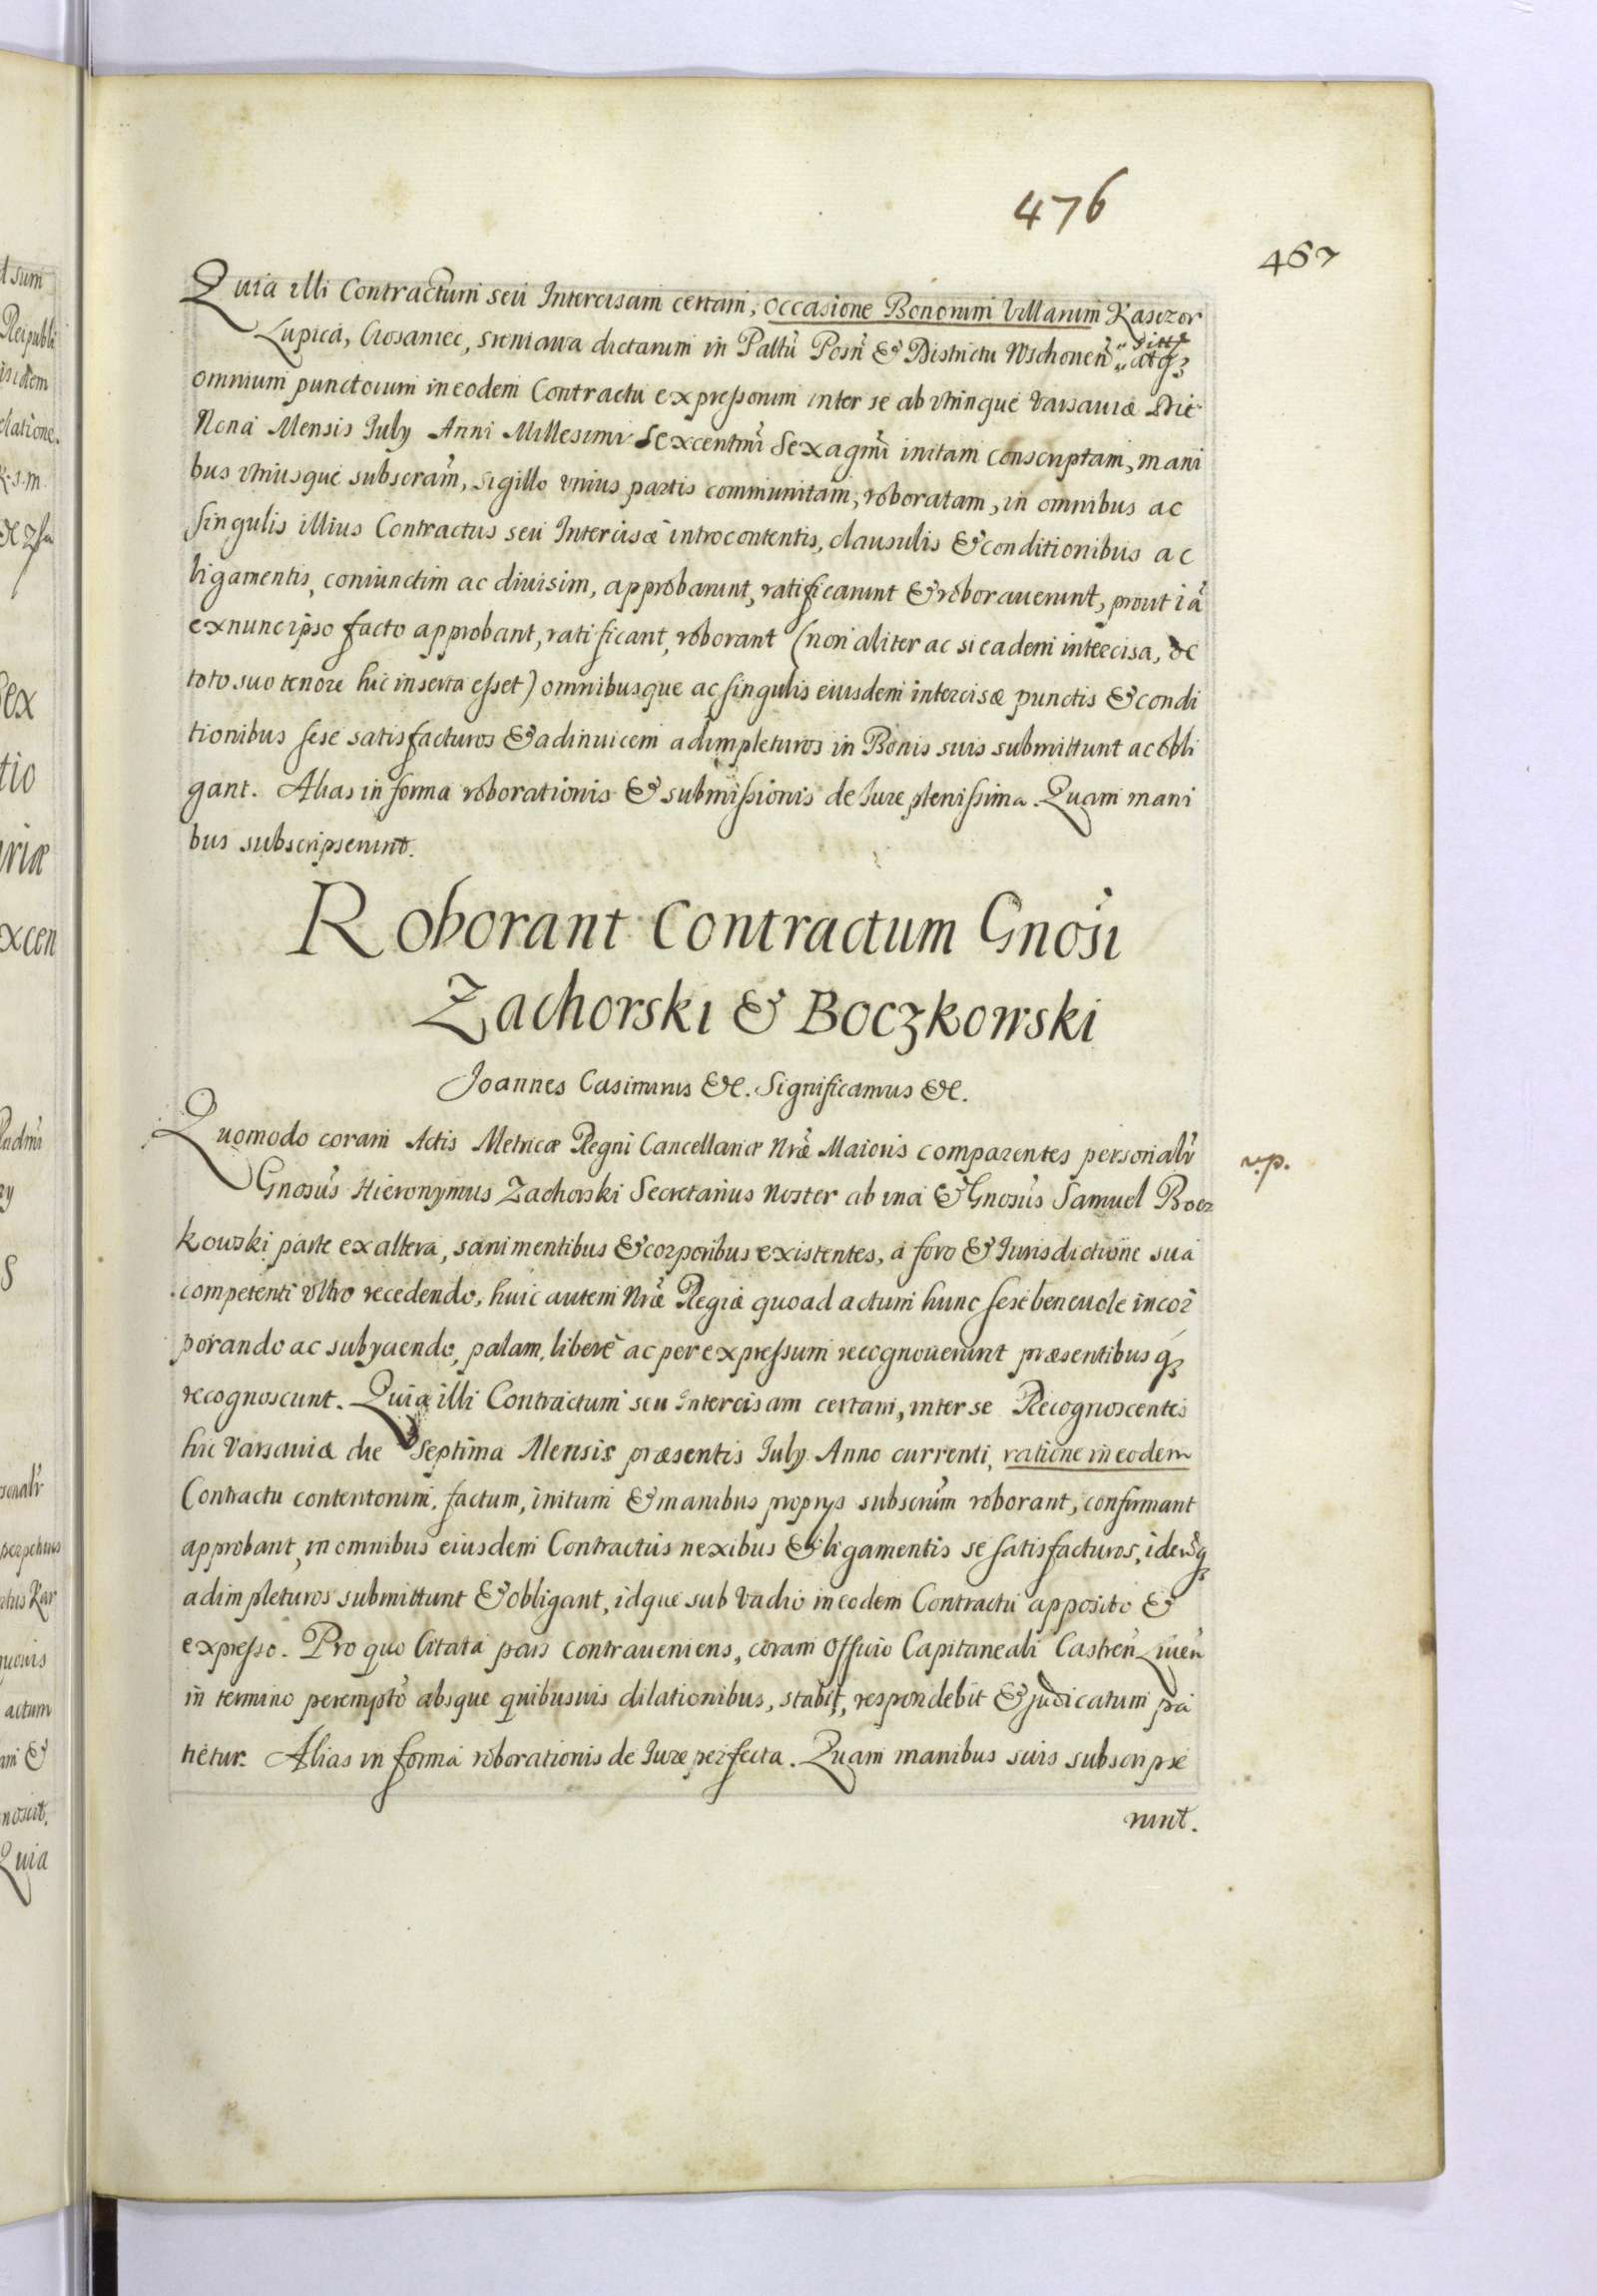 476
467
Quia illi Contractum seu Intercisam certam, occasione Bonorum Villarum Kaszczor
Lupica, Ciosaniec, Sieniawa dictarum in Palltũ Posñ & Districtu Wschoneñ sitt: atq3
omnium punctorum in eodem Contractu expressorum inter se ab utrinque Varsauiæ Die
Nona Mensis July Anni Millesimi Sexcentmi Sexagmi initam conscriptam, mani
bus utriusque subscram, sigillo unius partis communitam, roboratam, in omnibus ac
singulis illius Contractus seu Intercisæ introcontentis, clausulis & conditionibus ac
ligamentis, coniunctim ac diuisim, approbarunt, ratificarunt & roborauerunt, prout iã
exnunc ipso facto approbant, ratificant, roborant (non aliter ac si eadem intercisa, de
toto suo tenore hic inserta esset) omnibusque ac singulis eiusdem intercisæ punctis & condi
tionibus sese satisfacturos & adinuicem adimpleturos in Bonis suis submittunt ac obli
gant. Alias in forma roborationis & submissionis de Iure plenissima. Quam mani
bus subscripserunt.
Roborant Contractum Gnosi
Zachorski & Boczkowski
Joannes Casimirus &c. Significamus &c.
Quomodo coram Actis Metricæ Regni Cancellariæ Nræ Maioris comparentes personalr
r.p.
Gnosus Hieronymus Zachorski Secretarius Noster ab una & Gnosus Samuel Bocz
kowski parte ex altera, sani mentibus & corporibus existentes, à foro & Iurisdictione sua
competenti ultro recedendo, huic autem Nræ Regiæ quoad actum hunc sese beneuole incor
porando ac subyciendo, palam, liberè ac per expressum recognouerunt præsentibus q3
recognoscunt. Quia illi Contractum seu Intercisam certam, inter se Recognoscentes
hic Varsauiæ die Septima Mensis præsentis July Anno currenti, ratione in eodem
Contractu contentorum, factum, initum & manibus proprys subscrum roborant, confirmant
approbant, in omnibus eiusdem Contractus nexibus & ligamentis se satisfacturos, idemq3
adimpleturos submittunt & obligant, idque sub vadio in eodem Contractu apposito &
expresso. Pro quo Citata pars contraueniens, coram Officio Capitaneali Castreñ Liueñ
in termino perempto absque quibusuis dilationibus, stabit, respondebit & judicatum pa
tietur. Alias in forma roborationis de Iure perfecta. Quam manibus suis subscripse
runt.